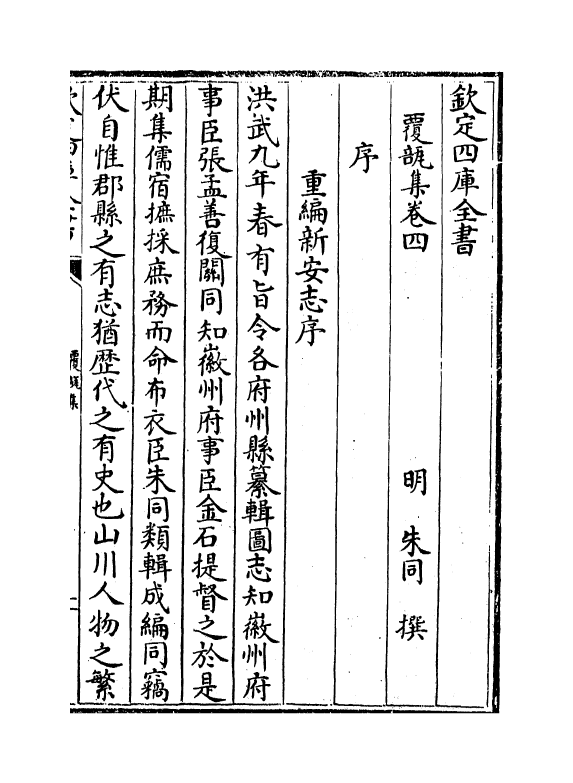 欽定四庫全書
覆瓿集卷四
明 朱同 撰
序
重編新安志序
洪武九年春有旨令各府州縣纂輯圖志知徽州府
事臣張孟善復關同知徽州府事臣金石提督之於是
期集儒宿摭採庶務而命布衣臣朱同類輯成編同竊
伏自惟郡縣之有志猶歴代之有史也山川人物之繁
覆瓿集